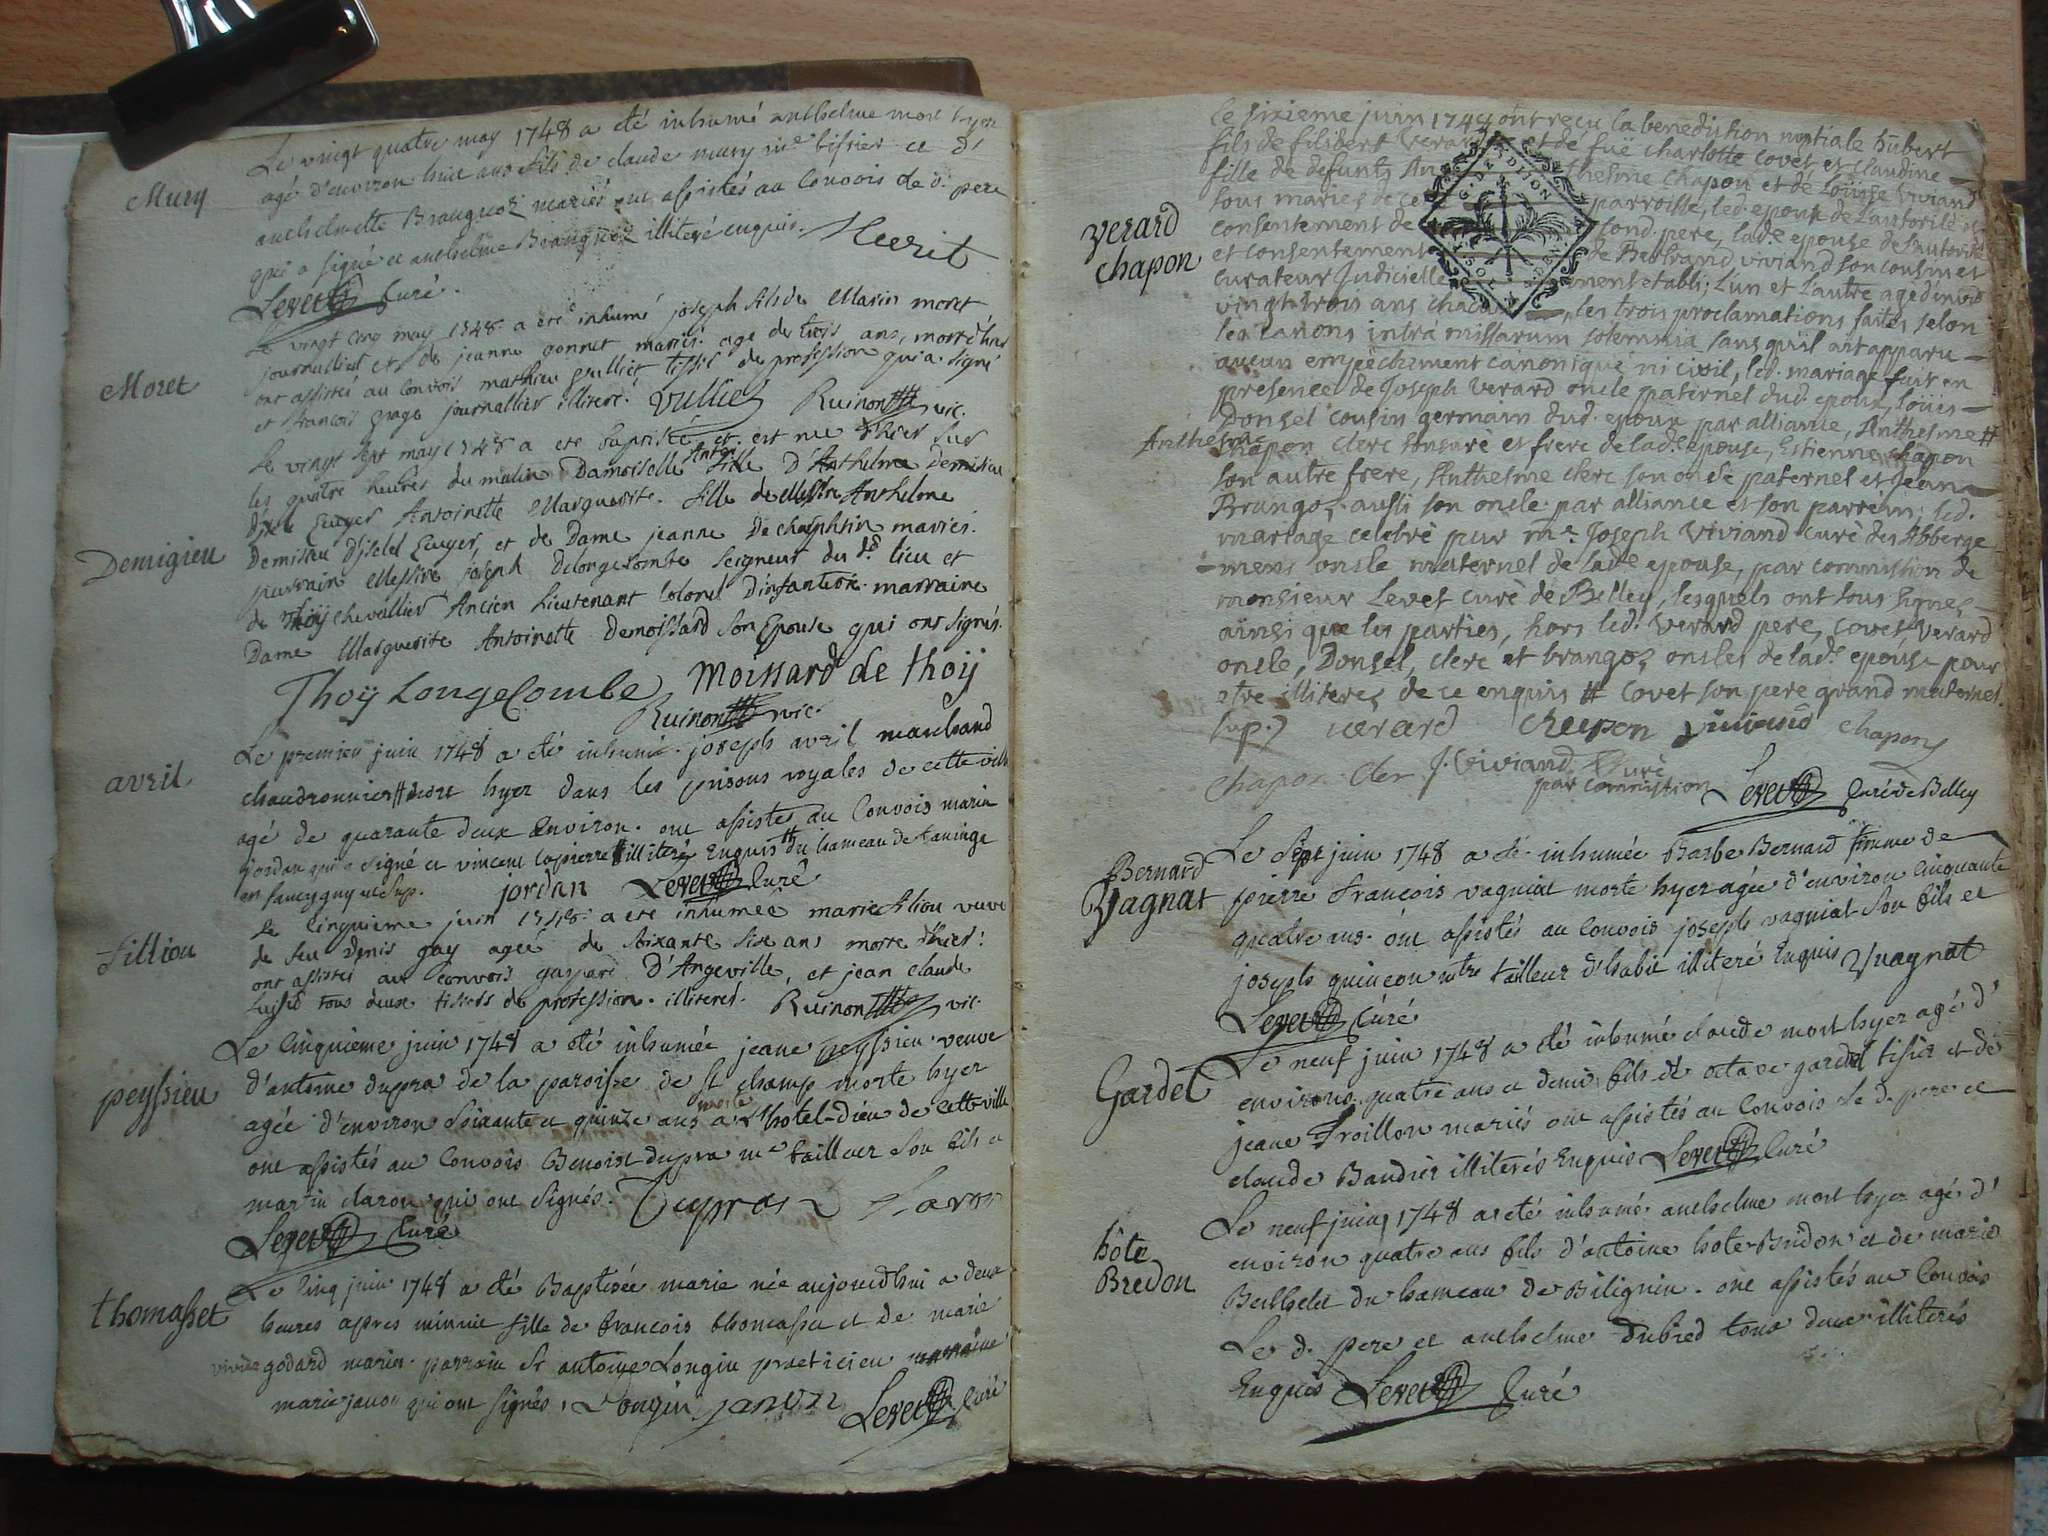 Mury
Le vingt quatre may 1748 a été inhumé anthelme mort hyer
agé d'environ huit ans fils de claude mury me tissier et d'
anthelmette Brauguoz mariés ont assistés au Convois le d. pere
qui a signé et anthelme Brauguoz illiteré enquis. Meurit
Levet Curé.
Moret
Le vingt cinq may 1748. a eté inhumé joseph fils de Marin moret
journallier et de jeanne gonnet mariés. agé de trois ans, mort d'hier
ont assistés au Convois mathieu vulliet tissie de profession qui a signé
et francois journallier illiteré. Vulliet Ruinon vic.
Demigieu
Le vingt sept may 1748 a eté baptisée et est née d'hier sur
les quatre heures du matin Damoiselle fille d'Anthelme Demisieu
Ecuyer Antoinette Marguerite. fille de Messire Anthelme
Demisieu D'iselet Ecuyer, et de Dame jeanne de mariés.
parrain Messire joseph Delongecombe Seigneur du dt. lieu et
de Thoÿ Chevallier Ancien Lieutenant Colonel D'infanterie. marraine
Dame Marguerite Antoinette Demoissard Son Epouse qui ont signés.
Thoÿ LongeCombe Moissard de thoÿ
Ruinon vic.
avril
Le premier juin 1748 a été inhumé. joseph avril marchand
chaudronnier # mort hyer dans les prisons royales de cette ville
agé de quarante deux Environ. ont assistés au Convois marin
jordan qui a signé et vincent lapierre illiteré Enquis # du hameau de taninge
en faucygny # Sup. jordan Levet Curé
filliou
Le Cinquieme juin 1748. a eté inhumée marie filiou veuve
de feu Denis gay agée de soixante six ans morte d'hier.
ont assistés au convois gaspard D'Angeville, et jean claude
tous deux tissiers de profession. illiterés. Ruinon vic.
peyssieu
Le Cinquième juin 1748 a été inhumée jeane peyssieu veuve
d'antoine dupra de la paroisse de st champ morte hyer
agée d'environ Soixante et quinze ans morte a L'hotel-Dieu de Cette ville
ont assistés au Convois Benoist dupra me tailleur Son fils et
martin claron qui ont Signés. Dupras Claron
Levet Curé
thomasset
Le Cinq juin 1748 a été Baptisée marie née aujourd'hui a deux
heures apres minuit fille de francois thomasset et de marie
godard mariés. parrain Sr antoine Longin praticien marraine
marie janon qui ont signés, Longin janon Levet Curé
verard
chapon
le sixieme juin 1748 ont reçu la benediction nuptiale hubert
fils de filibert verard et de fuë charlotte covet et claudine
fille de defunts Anthesme chapon et de Loüise Viviand
tous mariés de cette parroisse, led. epoux de L'autorité et
consentement de sond. pere, lade. epouse de L'autorité
et consentement de Bertrand viviand son cousin et
curateur Judiciellement etabli; L'un et L'autre agé d'environ
vingt trois ans chacun, les trois proclamations faites selon
les canons intra missarum solemnia sans qu'il ait apparu
aucun empêchement canonique ni civil, led. mariage fait en
presence de Joseph verard oncle paternel dud. epoux, Loüis
Donsel cousin germain dud. epoux par alliance, Anthesme #
Anthesme chapon clerc tonsuré et frere de lade. epouse, Estienne chapon
son autre frere, Anthesme clerc son oncle paternel et Jean
Brangoz aussi son oncle par alliance et son parrein; led.
mariage celebré par mr. Joseph Viviand curé des Abberge
mens oncle maternel de lade. epouse, par commission de
monsieur Levet curé de Belley, lesquels ont tous signez
ainsi que les parties, hors led. verard pere, covet, verard
oncle, Donsel, clerc et brangoz oncles de lade. epouse pour
etre illiterez de ce enquis # Covet son pere grand maternel.
sup. verard chapon viviand chapon
chapon cler J. Viviand Curé
par commission Levet Curé de Belley
Bernard
Vagnat
Le Sept juin 1748 a été inhumée Barbe Bernard femme de
pierre francois vagniat morte hyer agée d'environ Cinquante
quatre ans. ont assistés au Convois joseph vagniat son fils et
joseph quincon mtre tailleur d'habit illiteré Enquis Vuagnat
Levet Curé
Gardel
Le neuf juin 1748 a été inhumé claude mort hyer agé d'
environs quatre ans et demi fils de octave gardel tissier et de
jeane Troillon mariés ont assistés au Convois Le d. pere et
claude Baudier illiterés Enquis Levet Curé
hôte
Bredon
Le neuf juin 1748 a été inhumé anthelme mort hyer agé d'
environ quatre ans fils d'antoine hote-Bredon et de marie
Berthelet du hameau de Bilignin. ont assistés au Convois
Le d. pere et anthelme Dubied tous deux illiterés
Enquis Levet Curé